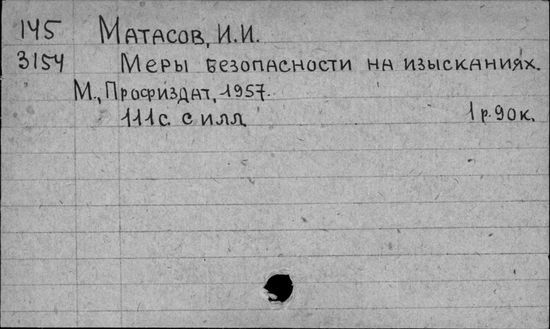 145 Матасов, И.И.
3154 Меры безопасности на изысканиях.
М., Профиздат, 1957.
111с. с илл 1р.90к.